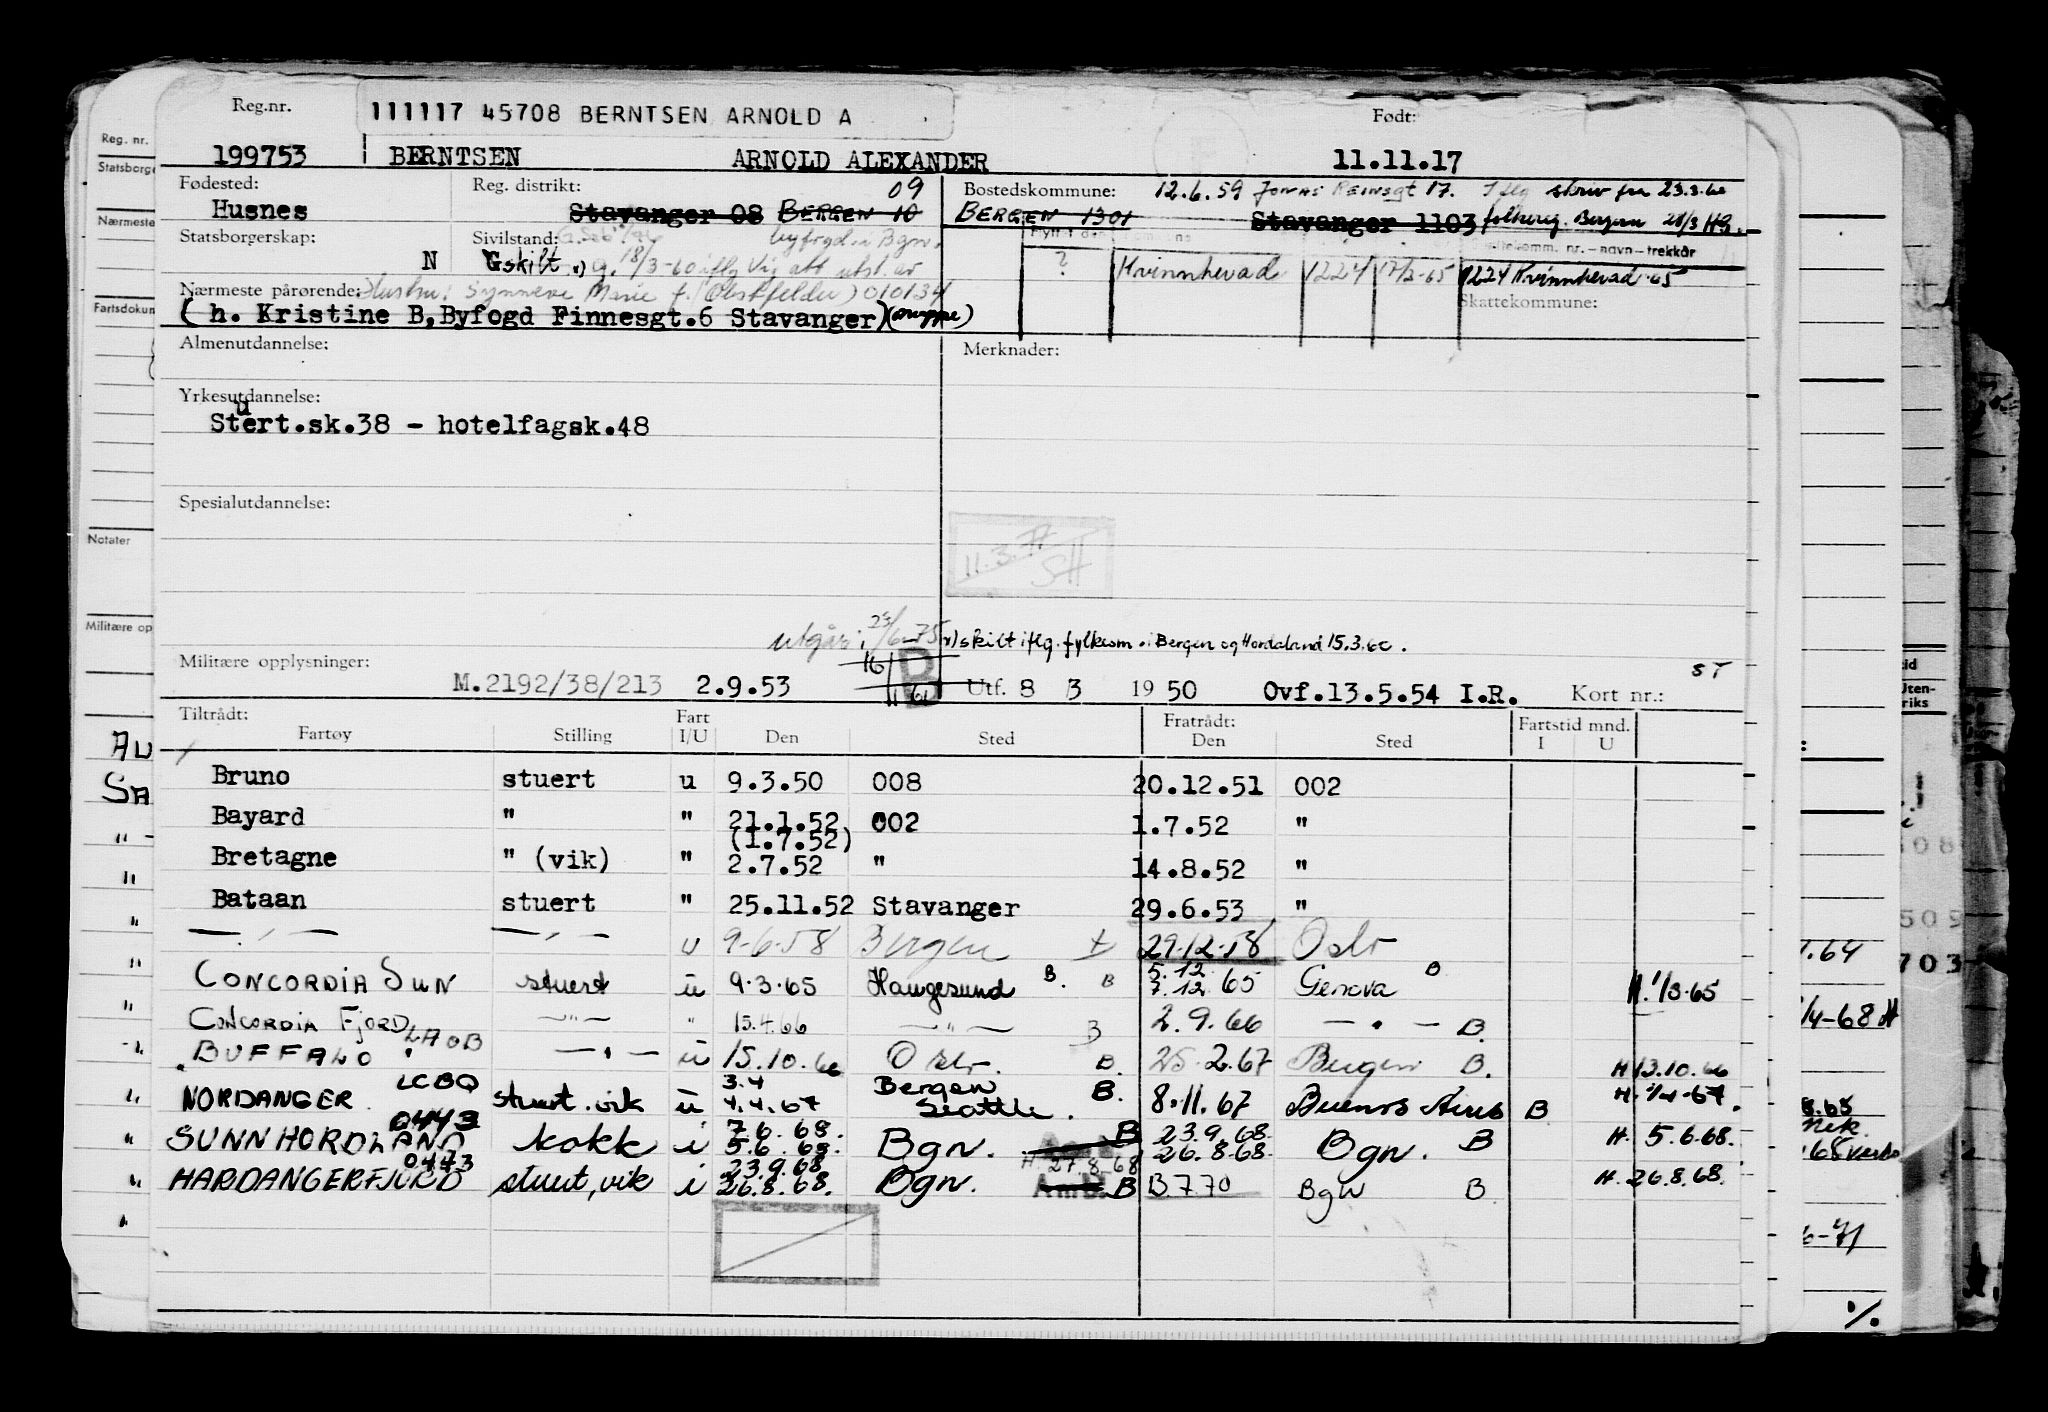 Reg.nr.
111117 45708 BERNTSEN ARNOLD A
Født:
199753 BERNTSEN ARNOLD ALEXANDER 11.11.17
Fødested: Reg. distrikt: 09 Bostedskommune: 12.6.59 JONAS REINSGT 17. Iflg skriv fra 23.3.60
Husnes Stavanger 08 BERGEN 10 BERGEN 1301 Stavanger 1103 folkereg. Bergen 28/3 HG.
Statsborgerskap: Sivilstand: byfogd i Bgn.
N Gskilt x) g. 18/3-60 iflg vig att utst. av
? Kvinnherad 1224 17/3-65 1224 Kvinnherad 65
Skattekommune:
Nærmeste pårørende: Hustru: Synneve Marie f. (Obstfelder) 010134
( h. Kristine B, Byfogd Finnesgt.6 Stavanger)
Almenutdannelse: Merknader:
Yrkesutdannelse:
Stuert.sk.38 - hotelfagsk.48
Spesialutdannelse:
11.3.77
SH
utgår: 25/6-75 x) skilt iflg. fylkesm. i Bergen og Hordaland 15.3.60.
Militære opplysninger: 16 B ST
M.2192/38/213 2.9.53 Utf. 8 3 1950 Ovf.13.5.54 I.R. Kort nr.:
Tiltrådt: Fart Fratrådt: Fartstid mnd.
Fartøy Stilling I/U Den Sted Den Sted I U
Bruno stuert u 9.3.50 008 20.12.51 002
Bayard " " 21.1.52 002 1.7.52 "
(1.7.52)
Bretagne " (vik) " 2.7.52 " 14.8.52 "
Bataan stuert " 25.11.52 Stavanger 29.6.53 "
— " — — " — u 9-6-58 Bergen t 29.12.58 Oslo
CONCORDIA SUN stuert u 9.3.65 Haugesund B. B 5.12 7.12.65 Genova B H. 1/3-65
CONCORDIA FJORD — " — " 15.4.66 — " — B 2.9.66 — " — B.
BUFFALO LAOB — " — u 15.10.66 Oslo. B. 25.2.67 Bergen B. H 13.10.66
NORDANGER LCBQ stuert.vik u 3.4 4.4.67 Bergen Seattle. B. 8.11.67 Buenos Aires B H. 1/4-67.
SUNNHORDLAND 0443 kokk i 7.6.68. 5.6.68. Bgn. B 23.9.68. 26.8.68. Bgn. B H. 5.6.68.
H. 27.8.68
HARDANGERFJORD 0473 stuert, vik i 23.9.68 26.8.68. Bgn. B B770 Bgn B H. 26.8.68.
Reg. nr.
Statsborge
Nærmeste
Fartsdokun
Notater
Militære op
AU
SA
tid
Uten-
riks
508
509
703
.64
/4-68 H
6-71